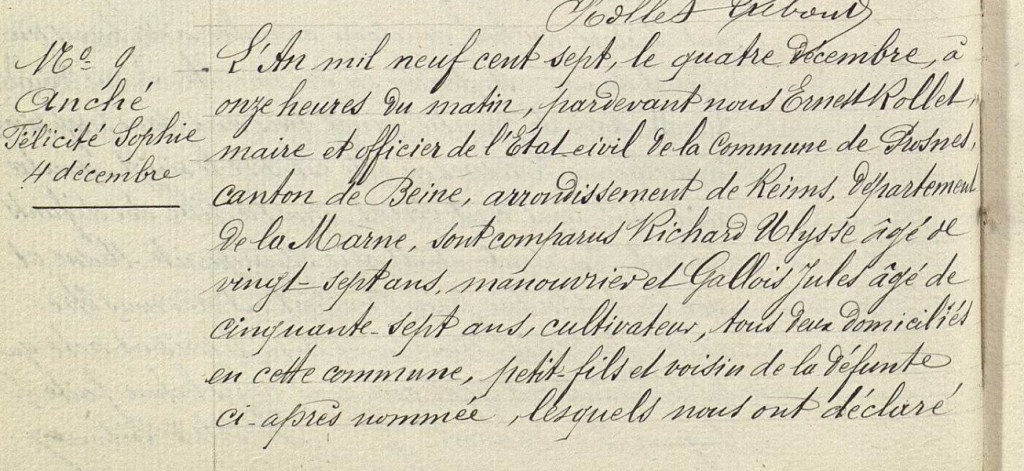 Rollet
No 9
Anché
Félicité Sophie
4 décembre
L'An mil neuf cent sept, le quatre décembre, à
onze heures du matin, pardevant nous Ernest Rollet,
maire et officier de l'Etat-civil de la Commune de Prosnes,
canton de Beine, arrondissement de Reims, département
de la Marne, sont comparus Richard Ulysse âgé de
vingt-sept ans, manouvrier et Gallois Jules âgé de
cinquante-sept ans, cultivateur, tous deux domiciliés
en cette commune, petit-fils et voisin de la défunte
ci-après nommée, lesquels nous ont déclaré